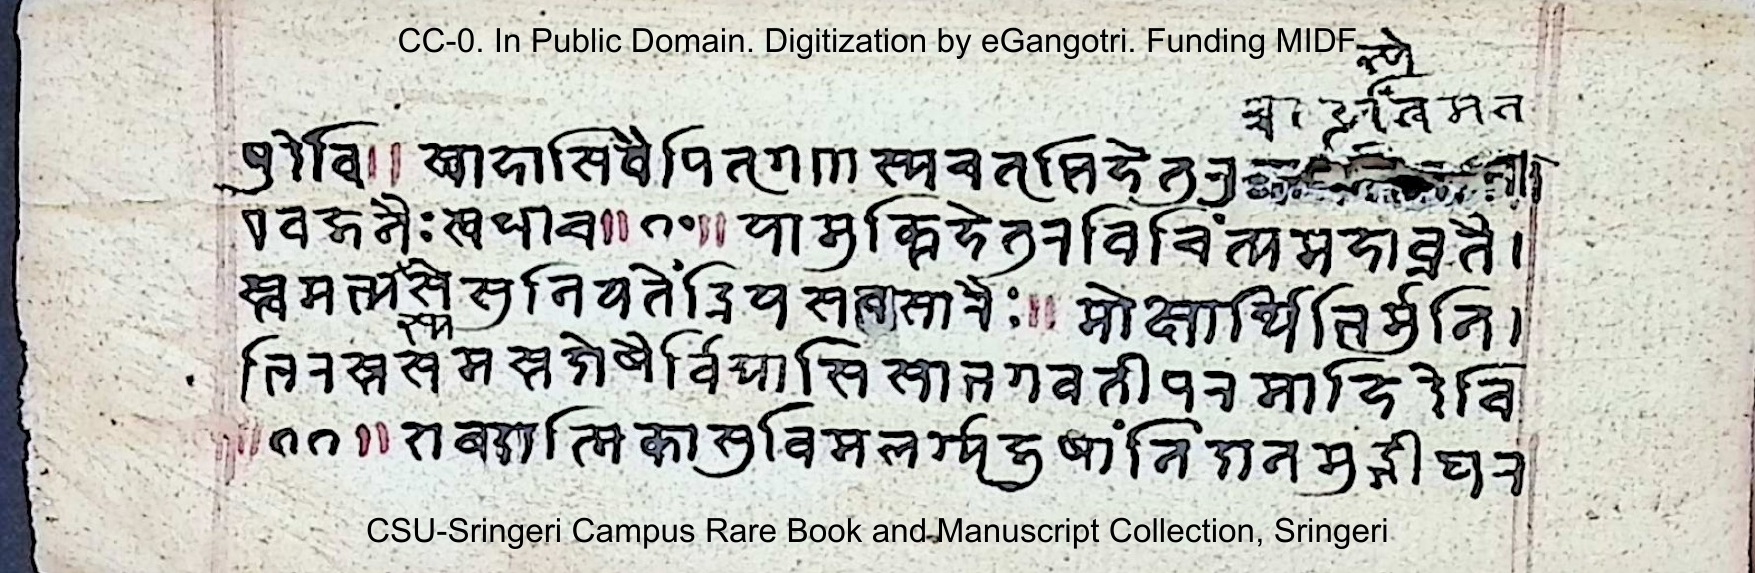 CC-0. In Public Domain. Digitization by eGangotri. Funding MIDF
च्चा त्वमत
षुदेवि॥ स्वाहासिवैपितृगणस्यचतृप्तिहेतुरु
एवजनैःस्वधाच॥१०॥ यामुक्तिहेतुरविचिंत्यमहाव्रतै।
स्त्वमभ्यस्यसेसुनियतेंद्रियसत्वसारैः॥ मोक्षार्थिभिर्मुनि।
भिरस्तसमस्तदोषैर्विद्यासिसाभगवतीपरमाहिदेवि
॥११॥ शब्दात्मिकासुविमलर्ग्यजुषांनिधानमुद्गीथर
CSU-Sringeri Campus Rare Book and Manuscript Collection, Sringeri